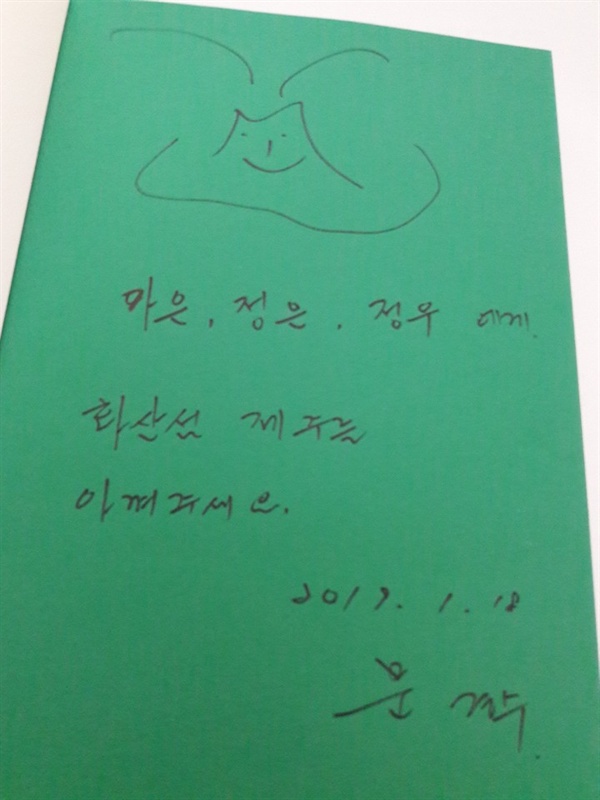 마은, 정은, 정우 에게.
화산섬 제주를
아껴주세요.
2017. 1. 18
윤